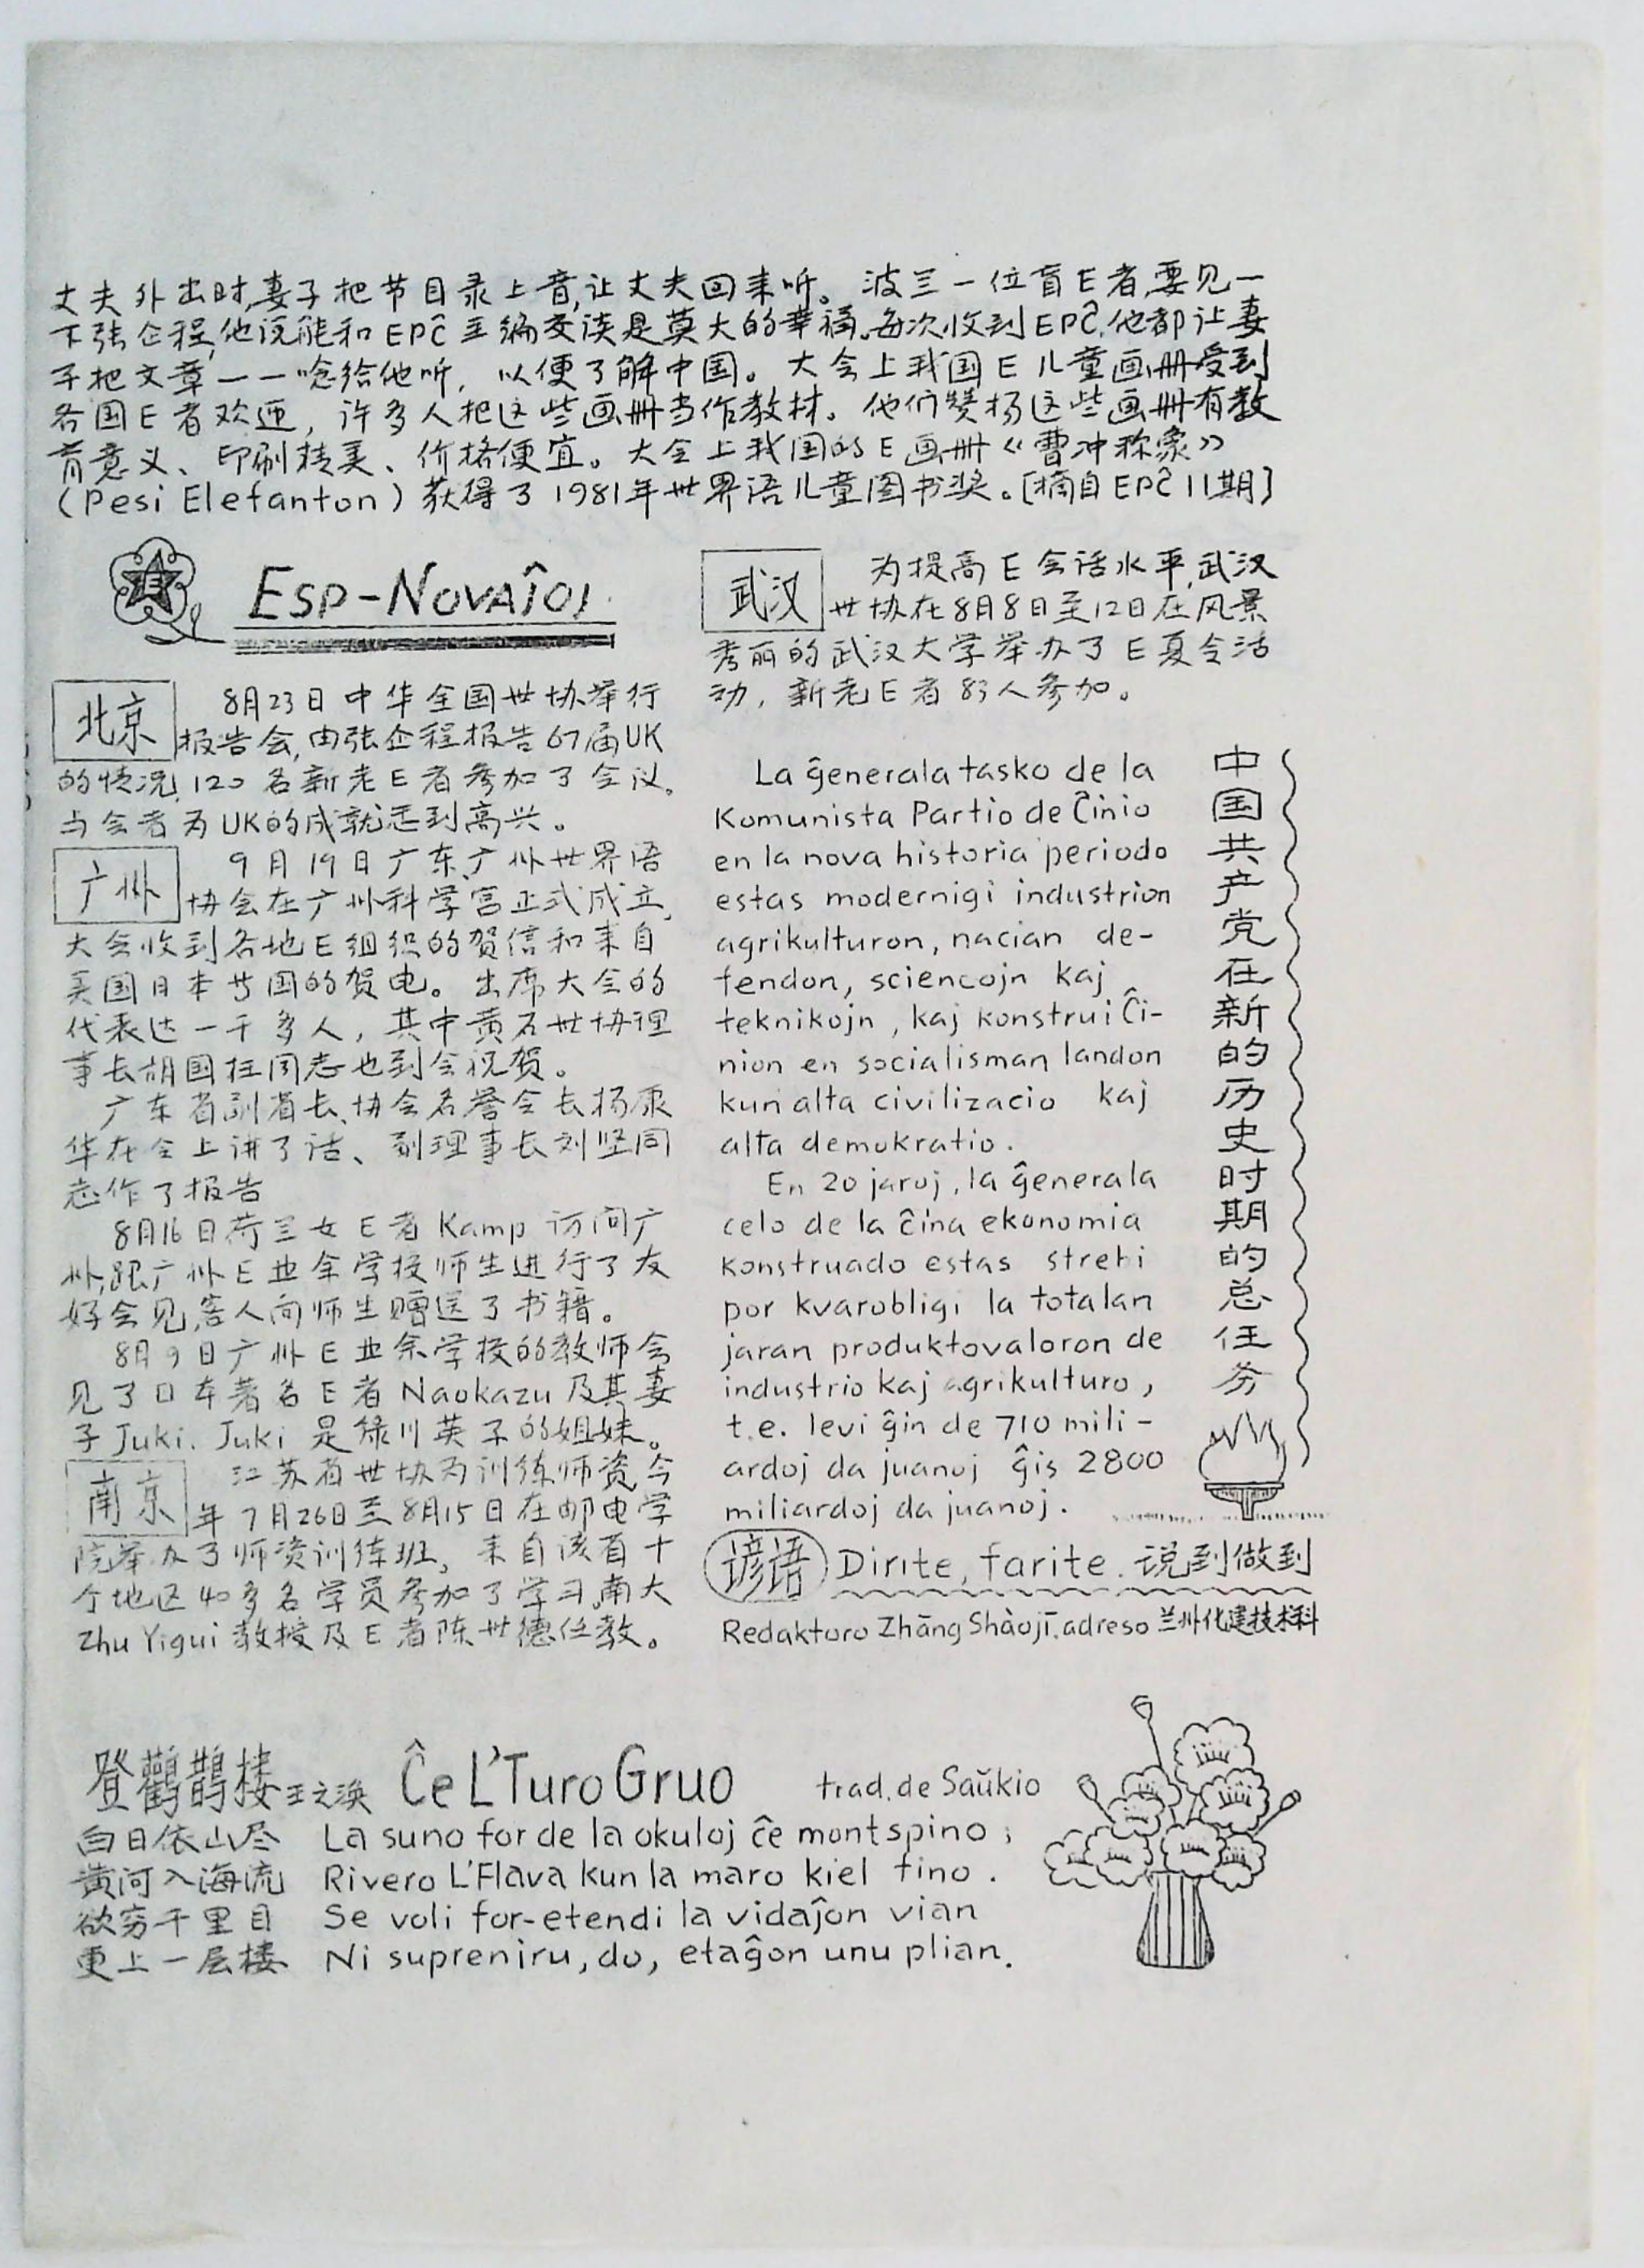 丈夫外出时,妻子把节目录上音,让丈夫回来听。波兰一位盲E者,要见一
下张企程,他说能和EPĈ主编交谈是莫大的幸福。每次收到EPĈ,他都让妻
子把文章一一唸给他听,以便了解中国。大会上我国E儿童画册受到
各国E者欢迎,许多人把这些画册当作教材。他们赞扬这些画册有教
育意义、印刷精美、价格便宜。大会上我国的E画册《曹冲称象》
(Pesi Elefanton)获得了1981年世界语儿童图书奖。[摘自EPĈ11期]
ESP-NOVAĴOJ
北京
8月23日中华全国世协举行
报告会,由张企程报告67届UK
的情况,120名新老E者参加了会议。
与会者为UK的成就感到高兴。
广州
9月19日广东、广州世界语
协会在广州科学宫正式成立,
大会收到各地E组织的贺信和来自
美国日本等国的贺电。出席大会的
代表达一千多人,其中黄石世协理
事长胡国柱同志也到会祝贺。
广东省副省长、协会名誉会长杨康
华在会上讲了话、副理事长刘坚同
志作了报告
8月16日荷兰女E者Kamp访问广
州,跟广州E业余学校师生进行了友
好会见,客人向师生赠送了书籍。
8月9日广州E业余学校的教师会
见了日本著名E者Naokazu及其妻
子Juki. Juki是绿川英子的姐妹。
南京
江苏省世协为训练师资,今
年7月26日至8月15日在邮电学
院举办了师资训练班。来自该省十
个地区40多名学员参加了学习,南大
Zhu Yigui教授及E者陈世德任教。
武汉
为提高E会话水平,武汉
世协在8月8日至12日在风景
秀丽的武汉大学举办了E夏令活
动,新老E者83人参加。
La ĝenerala tasko de la
Komunista Partio de Ĉinio
en la nova historia periodo
estas modernigi industrion
agrikulturon, nacian de-
fendon, sciencojn kaj
teknikojn, kaj konstrui Ĉi-
nion en socialisman landon
kun alta civilizacio kaj
alta demokratio.
En 20 jaroj, la ĝenerala
celo de la ĉina ekonomia
konstruado estas strebi
por kvarobligi la totalan
jaran produktovaloron de
industrio kaj agrikulturo,
t.e. levi ĝin de 710 mili-
ardoj da juanoj ĝis 2800
miliardoj da juanoj.
中国共产党在新的历史时期的总任务
谚语 Dirite, farite. 说到做到
Redaktoro Zhāng Shàojī, adreso 兰州化建技术科
登鸛鵲楼 王之涣 Ĉe L'Turo Gruo trad. de Saŭkio
白日依山尽 La suno for de la okuloj ĉe montspino;
黄河入海流 Rivero L'Flava kun la maro kiel fino.
欲穷千里目 Se voli for-etendi la vidaĵon vian
更上一层楼 Ni supreniru, do, etaĝon unu plian.